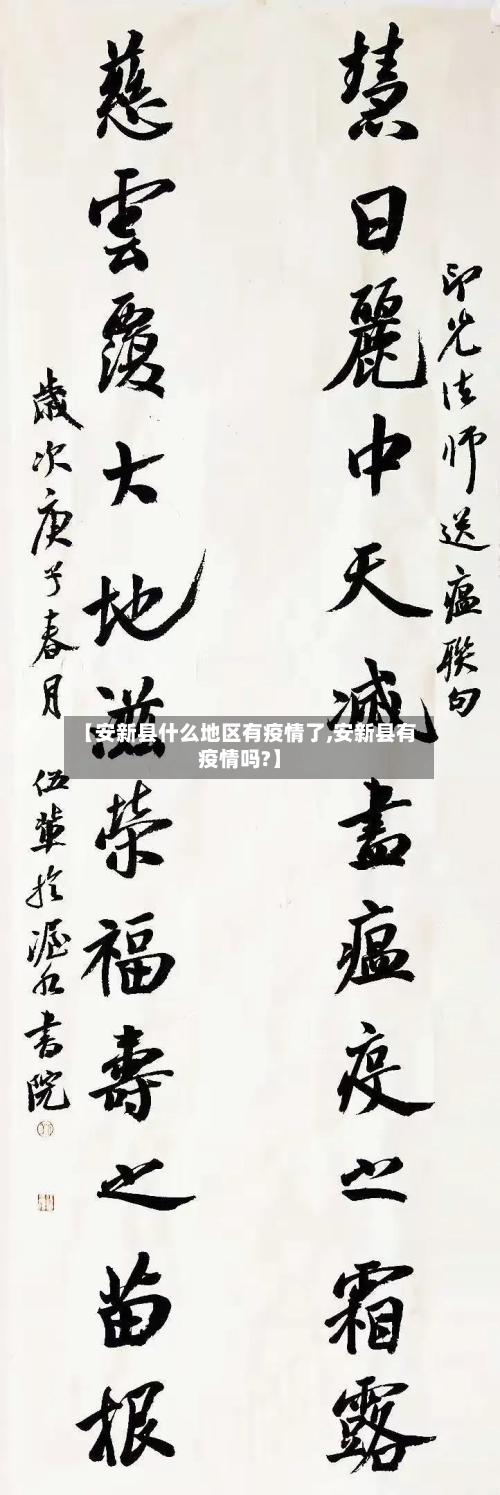 印光法师送瘟联句
慧日麗中天滅盡瘟疫之霜露
慈雲覆大地滋榮福壽之苗根
歲次庚子春月
書院
【安新县什么地区有疫情了,安新县有
疫情吗?】